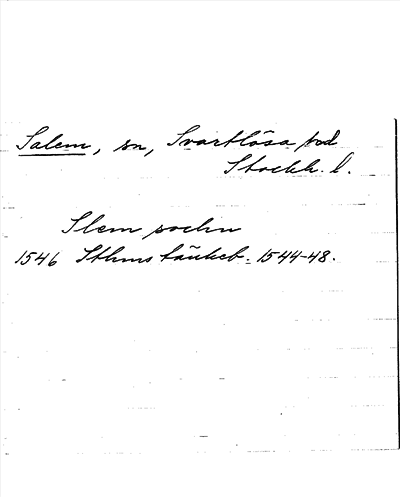 Salem, sn, Svartlösa hd
Stockh. l.
Slem sochn
1546 Sthms tänkeb. 1544-48.